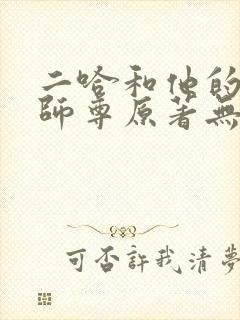 二哈和他的
師尊原著無
可否許我清夢